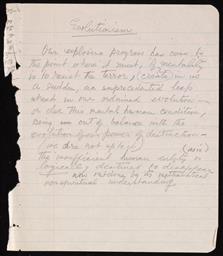 Evolutionism
Our explosive progress has come to
the point where it must, if mentality
is to resist the terror, (create) in us
a sudden, an unprecedented leap
ahead in our ordained evolution —
or else this mental human condition,
being now out of balance with the
evolution of our powers of destruction —
(we are not up to it) (now is)
the insufficient human entity is
logically destined to disappear
now by its
nonspiritual understanding